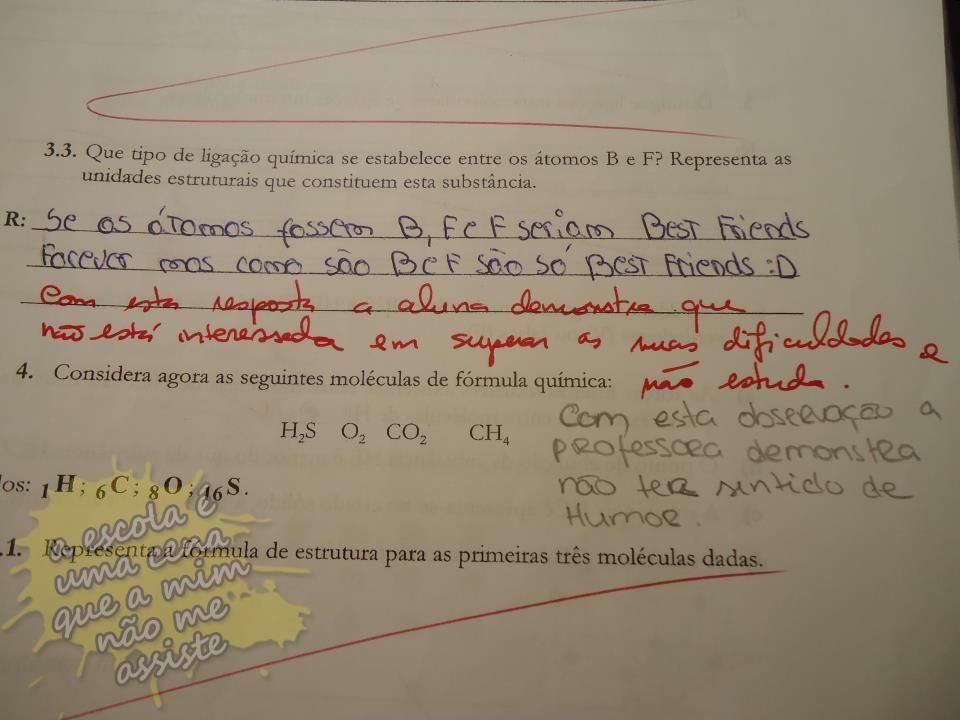 3.3. Que tipo de ligação química se estabelece entre os átomos B e F? Representa as
unidades estruturais que constituem esta substância.
R: Se os átomos fossem B, F e F seriam Best Friends
Forever mas como são B e F são só Best Friends :D
Com esta resposta a aluna demonstra que
não está interessada em superar as suas dificuldades e
não estuda.
4. Considera agora as seguintes moléculas de fórmula química:
H₂S O₂ CO₂ CH₄
Com esta observação a
professora demonstra
não ter sentido de
Humor.
los: ₁H; ₆C; ₈O; ₁₆S.
.1. Representa a fórmula de estrutura para as primeiras três moléculas dadas.
a escola é
uma cena
que a mim
não me
assiste